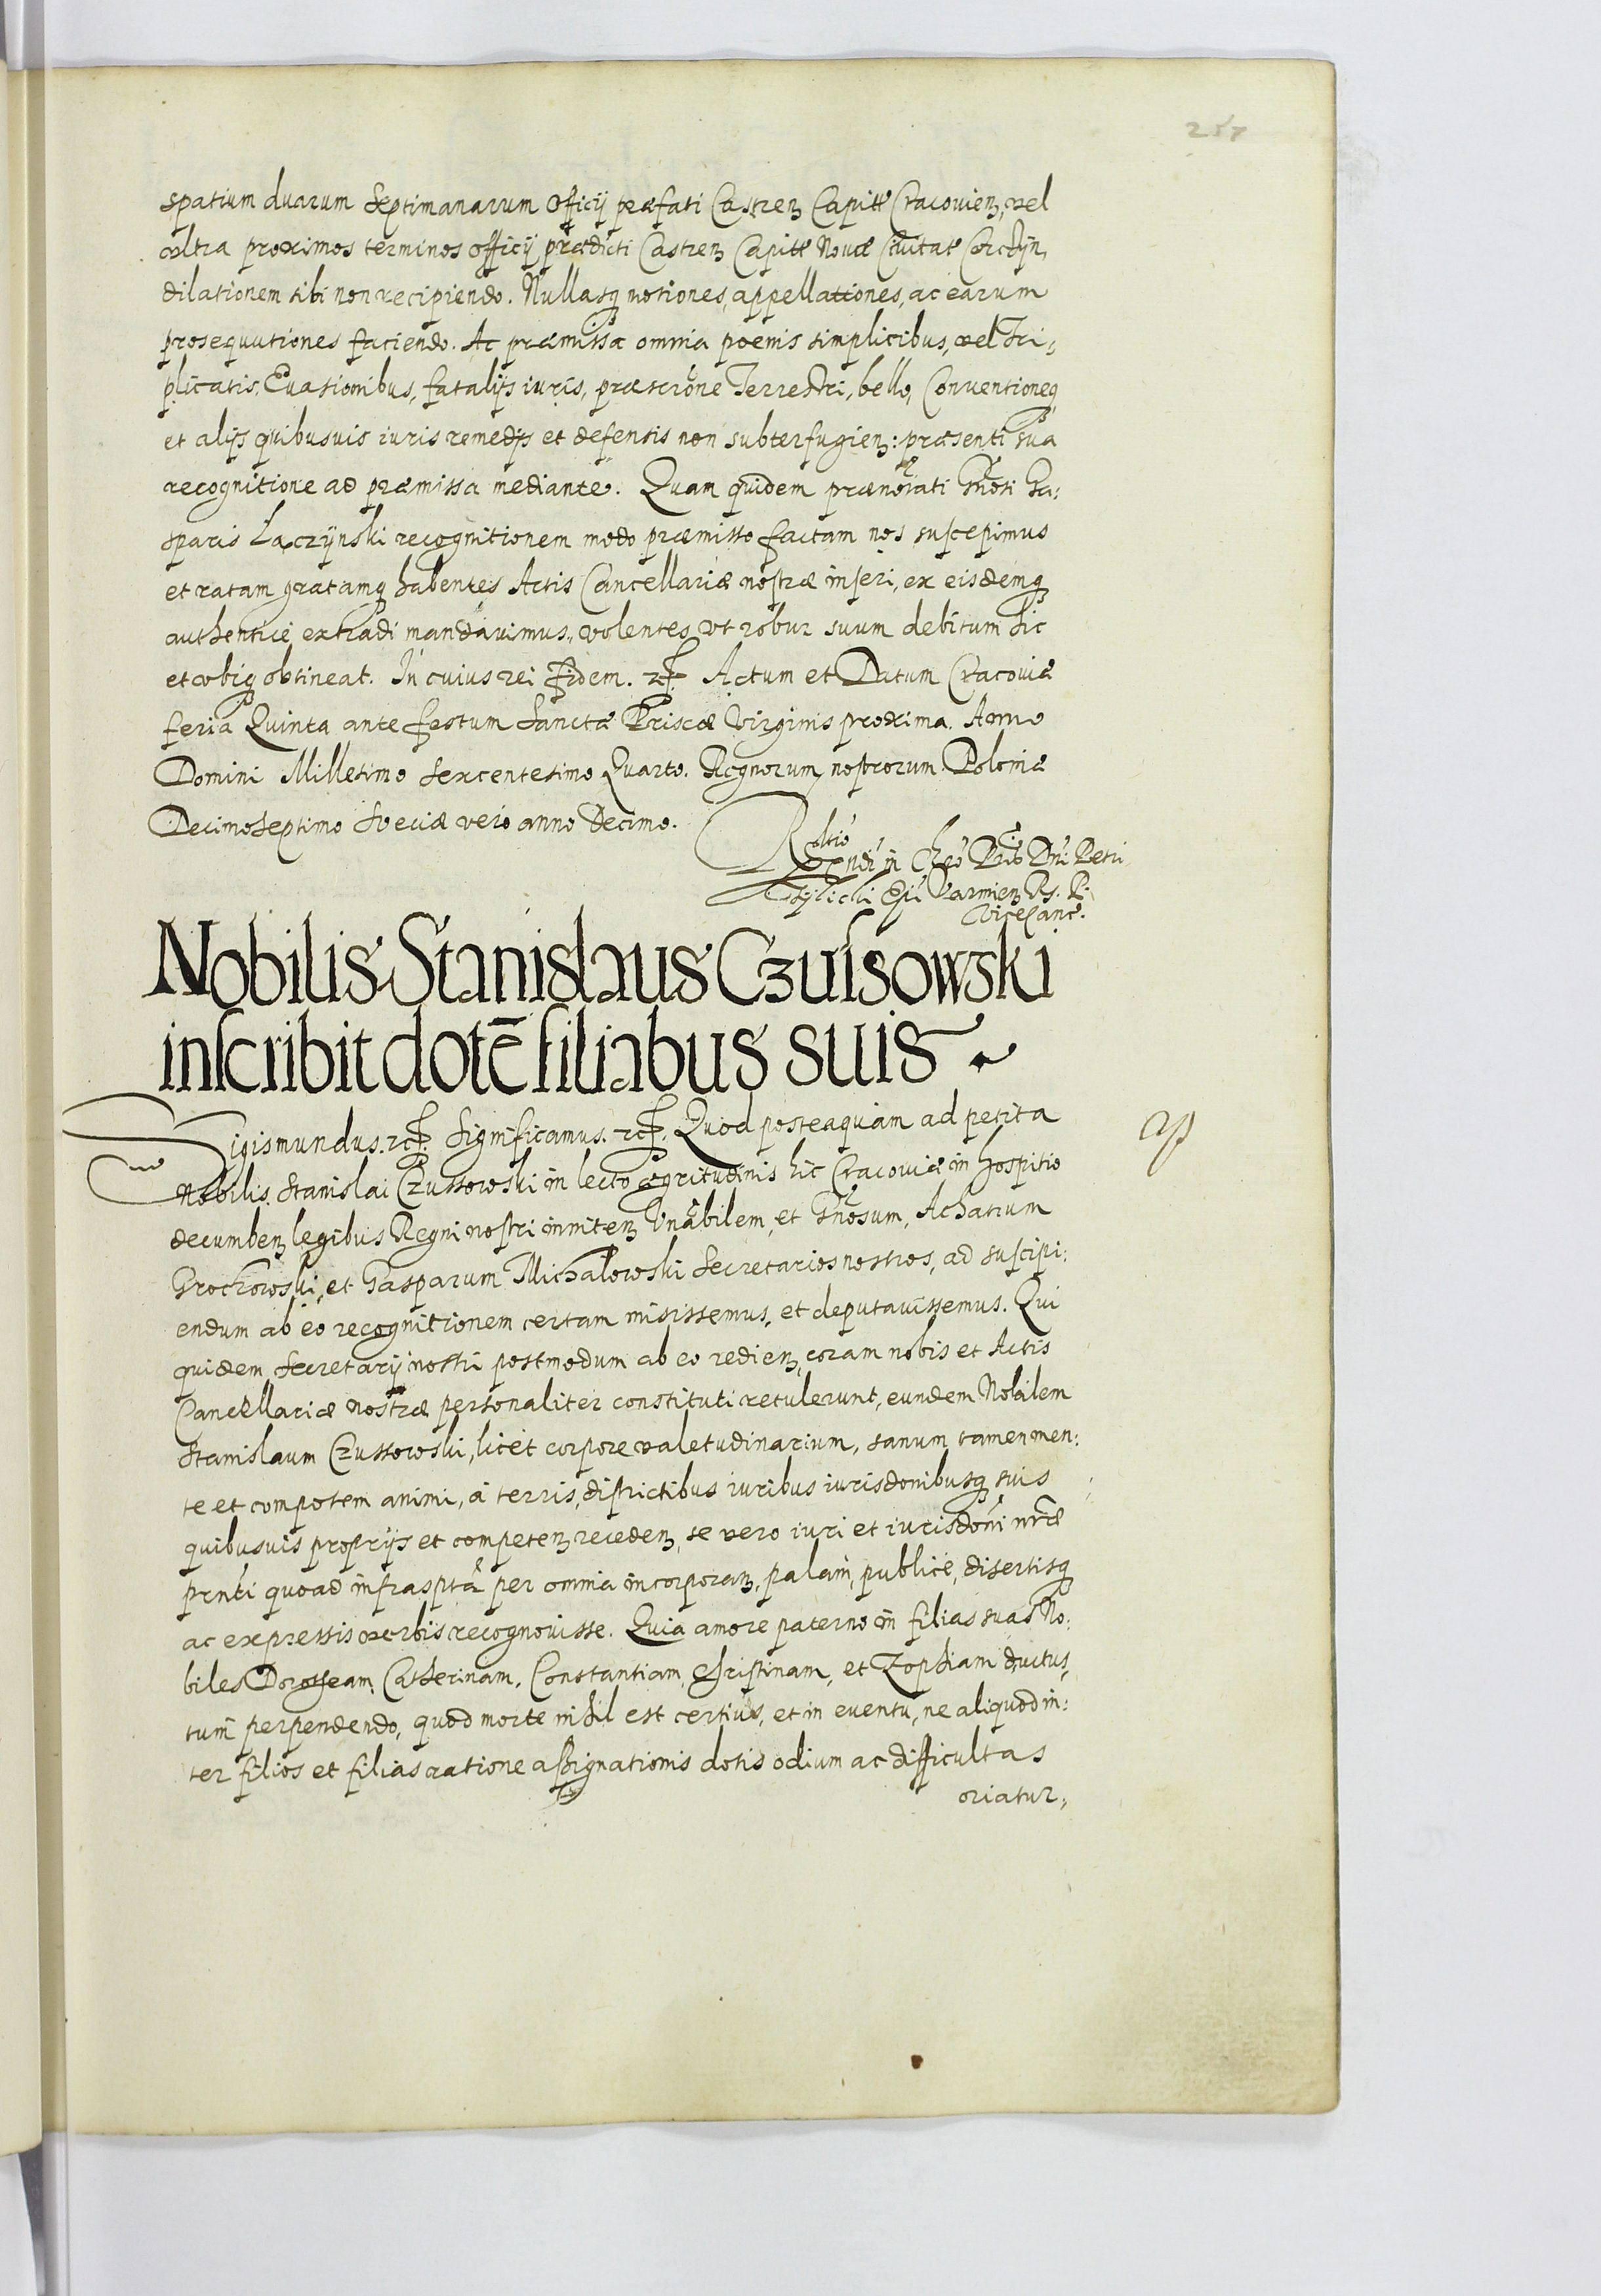 257
spatium duarum septimanarum Officij præfati Castren Capitt Cracouien, vel
vltra proximos terminos officij prædicti Castren Capitt Nouæ Ciuitat Corczÿn,
dilationem sibi non recipiendo. Nullasq motiones, appellationes, ac earum
prosequutiones faciendo. Ac præmissa omnia poenis simplicibus, vel Tri,
plicatis, Euasionibus, fatalijs iuris, præscrōne Terrestri, bello, Conuentioneq
et alijs quibusuis iuris remedijs et defensis non subterfugien: præsenti sua
recognitione ad præmissa mediante. Quam quidem prænoīati Gn̄osi Ga:
sparis Łączÿnski recognitionem modo præmisso factam nos suscepimus
et ratam gratamq habentes Actis Cancellariæ nostræ inseri, ex eisdemq
authenticè extradi mandauimus, volentes vt robur suum debitum hic
et vbiq obtineat. In cuius rei fidem. etc. Actum et Datum Cracouiæ
feria Quinta ante festum Sanctæ Priscæ Virginis proxima. Anno
Domini Millesimo Sexcentesimo Quarto. Regnorum nostrorum Poloniæ
Decimoseptimo Sueciæ vero anno Decimo.
Rltio
Rndi in Chro Pris Dni Petri
Tÿlicki Epi Varmien Rg. P.
Vicecanc.
Nobilis Stanislaus Czussowski
inscribit dotē filiabus suis
Sigismundus. etc. Significamus. etc. Quod posteaquam ad petita
Nobilis Stanislai Czussowski in lecto ægritudinis hic Cracouiæ in hospitio
decumben legibus Regni nostri inniten Vnābilem, et Gn̄osum, Achatium
Grochowski, et Gasparum Michalowski Secretarios nostros, ad suscipi:
endum ab eo recognitionem certam misissemus, et deputauissemus. Qui
quidem Secretarij nostri postmodum ab eo redien, coram nobis et Actis
Cancellariæ nostræ personaliter constituti retulerunt, eundem Nobilem
Stanislaum Czussowski, licèt corpore valetudinarium, sanum tamen men:
te et compotem animi, à terris, districtibus iuribus iurisdonibusq suis
quibusuis proprijs et competen receden, se vero iuri et iurisdōni nr̄æ
prn̄ti quoad infrascptā per omnia incorporan, palam, publicè, disertisq
ac expressis verbis recognouisse. Quia amore paterno in filias suas No:
biles Dorotheam, Catherinam, Constantiam, Christinam, et Zophiam ductus,
tum perpendendo, quod morte nihil est certius, et in euentu, ne aliquod in:
ter filios et filias ratione assignationis dotis odium ac difficultas
oriatur,